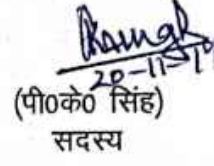 20-11-19
(पी0के0 सिंह)
सदस्य